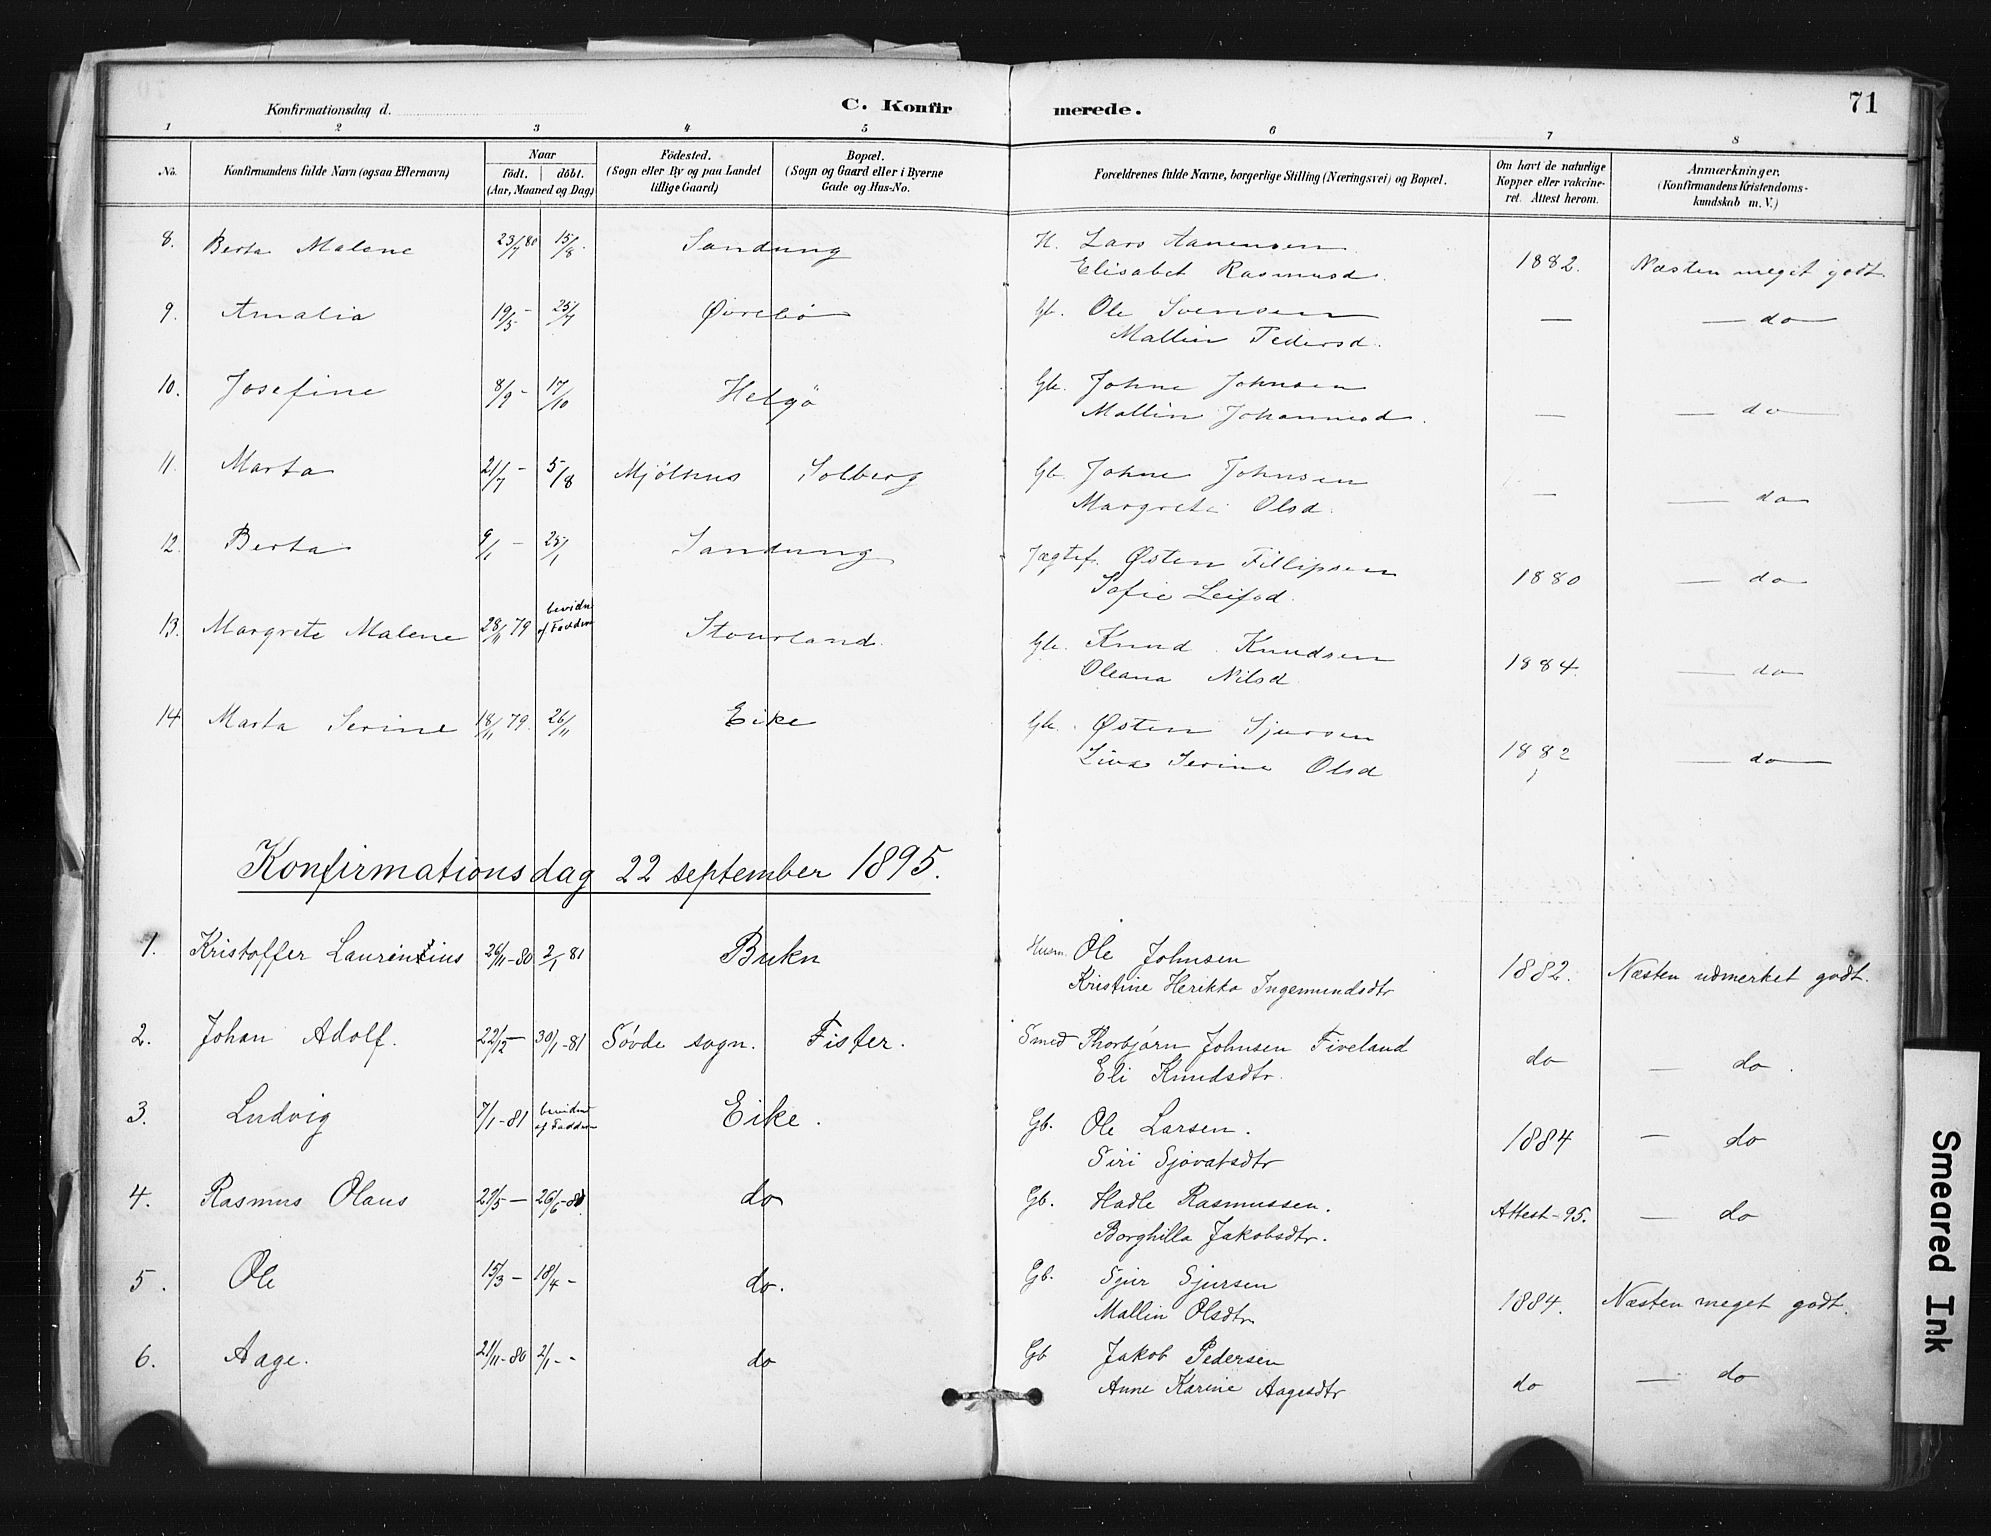 Konfirmationsdag d. C. Konfirmerede. 71
1 2 3 4 5 6 7 8
No. Konfirmandens fulde Navn (ogsaa Efternavn) Naar födt. döbt. (Aar, Maaned og Dag) Födested. (Sogn eller By og paa Landet tillige Gaard) Bopæl. (Sogn og Gaard eller i Byerne Gade og Hus-No. Forældrenes fulde Navne, borgerlige Stilling (Næringsvei) og Bopæl. Om havt de naturlige Kopper eller vakcineret. Attest herom. Anmærkninger. (Konfirmandens Kristendomskundskab m. V.)
8. Berta Malene 23/7 80 15/8 Sandung H. Lars Aanensen 1882. Næsten meget godt
Elisabet Rasmusd.
9. Amalia 19/5 - 25/7 Øvrebö Gb. Ole Svensen — — do —
Mallin Pedersd.
10. Josefine 8/9 - 17/10 Helgö Gb. Johne Johnsen — — do
Mallin Johannesd.
11. Marta 21/7 - 5/8 Mjölhus Solberg Gb. Johne Johnsen — — do
Margrete Olsd.
12. Berta 9/1 - 25/1 Sandung Jægtef. Østen Fillipsen 1880 — do
Sofie Leifsd.
13. Margrete Malene 28/11 79 bevidn af Faddern Stourland. Gb. Knud Knudsen 1884. — do
Oleana Nilsd.
14 Marta Serine 18/11 79. 26/11 Eike Gb. Østen Sjursen 1882 — do
Liva Serine Olsd
Konfirmationsdag 22 september 1895.
1. Kristoffer Laurentius 26/11-80 2/1 81 Bukn Husm. Ole Johnsen 1882. Næsten udmerket godt.
Kristine Herikka Ingemundsdtr
2. Johan Adolf. 22/12 — 30/1-81 Søvde sogn. Fister. Smed Thorbjørn Johnsen Fiveland do — do.
Eli Knudsdtr.
3. Ludvig 7/1-81 bevidn af Faddern Eike. Gb. Ole Larsen. 1884 — do
Siri Sjovatsdtr
4. Rasmus Olaus 27/5 — 26/6-81 do Gb. Hadle Rasmussen. Attest-95. — do
Borghilla Jakobsdtr.
5. Ole 15/3 — 18/4 - do. Gb. Sjur Sjursen 1884. Næsten meget godt.
Mallin Olsdtr
6. Aage. 21/11-80 2/1 - - do Gb Jakob Pedersen do — do
Anne Karine Aagesdtr
Smeared Ink